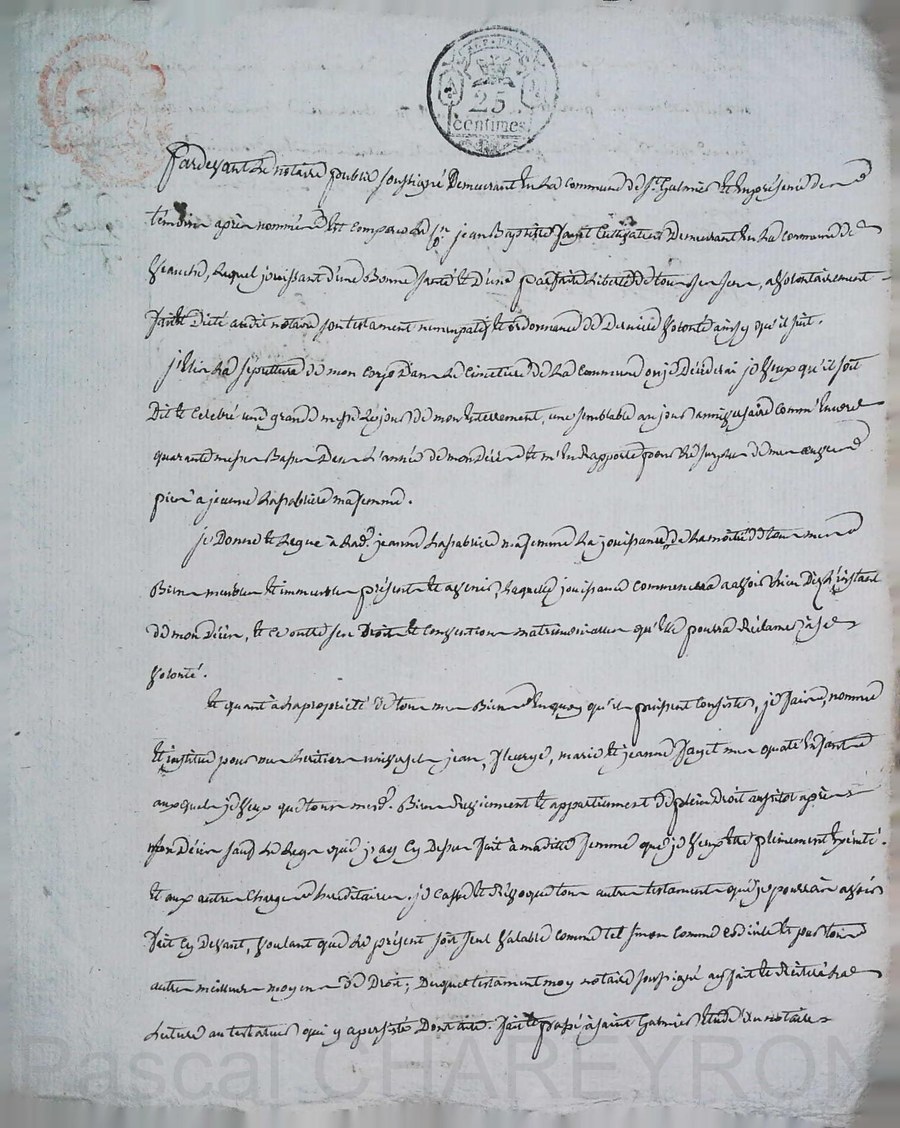 RÉP. FRA.
25
centimes
Pardevant Le notaire public soussigné Demeurant En La Commune de St. Galmier Et En présence des
témoins après nommés Est comparu Le Sr. jean Baptiste fayet Cultivateur Demeurant En La Commune de
Veauche, Lequel jouissant d'une Bonne santé Et D'une parfaite Liberté de tous ses sens, a Volontairement
fait Et Dicté audit notaire son testament nuncupatif Et ordonnance de Derniere Volonté ainsy qu'il suit.
j'Elis La sépulture de mon corps Dans Le Cimetiere de La Commune ou je Décéderai je Veux qu'il soit
Dit Et Celebré une grande messe Le jour de mon Enterrement, une semblable au jour anniversaire comm'Encore
quarante messes Basses Dans L'année de mon Décès Et m'En Rapporte pour Le surplus de mes œuvres
pies à jeanne Lafabliere ma femme.
je Donne Et Legue à Lad. jeanne Lafabliere ma femme La jouissance de La moitié de tous mes
Biens meubles Et immeubles présents Et avenir, Laquelle jouissance commencera a avoir Lieu Dès L'instant
de mon Décès, Et ce outre ses Droits Et Conventions matrimoniales qu'Elle pourra Réclamer à sa
Volonté.
Et quant à La propriété de tous mes Biens En quoy qu'ils puissent Consister, je faits, nomme
Et institue pour mes héritiers universels jean, fleurye, marie Et jeanne fayet mes quatre Enfants
auxquels je Veux que tous mesd. Biens Reviennent Et appartiennent de plein Droit aussitot après
mon Décès sauf Le Legs que j'ay Cy Dessus fait à madite femme que je Veux Etre pleinement Exécuté.
Et aux autres Charges héréditaires. je Casse Et Révoque tous autres testaments que je pourrais avoir
fait Cy Devant, Voulant que Le présent soit seul Valable comme tel sinon comme codicile Et par tous
autres meilleurs moyens de Droit; Duquel testament moy notaire soussigné ay fait Et Réitéré La
Lecture au testateur qui y a persisté Dont acte. fait Et passé à Saint Galmier Etude du notaire
Pascal CHAREYRON